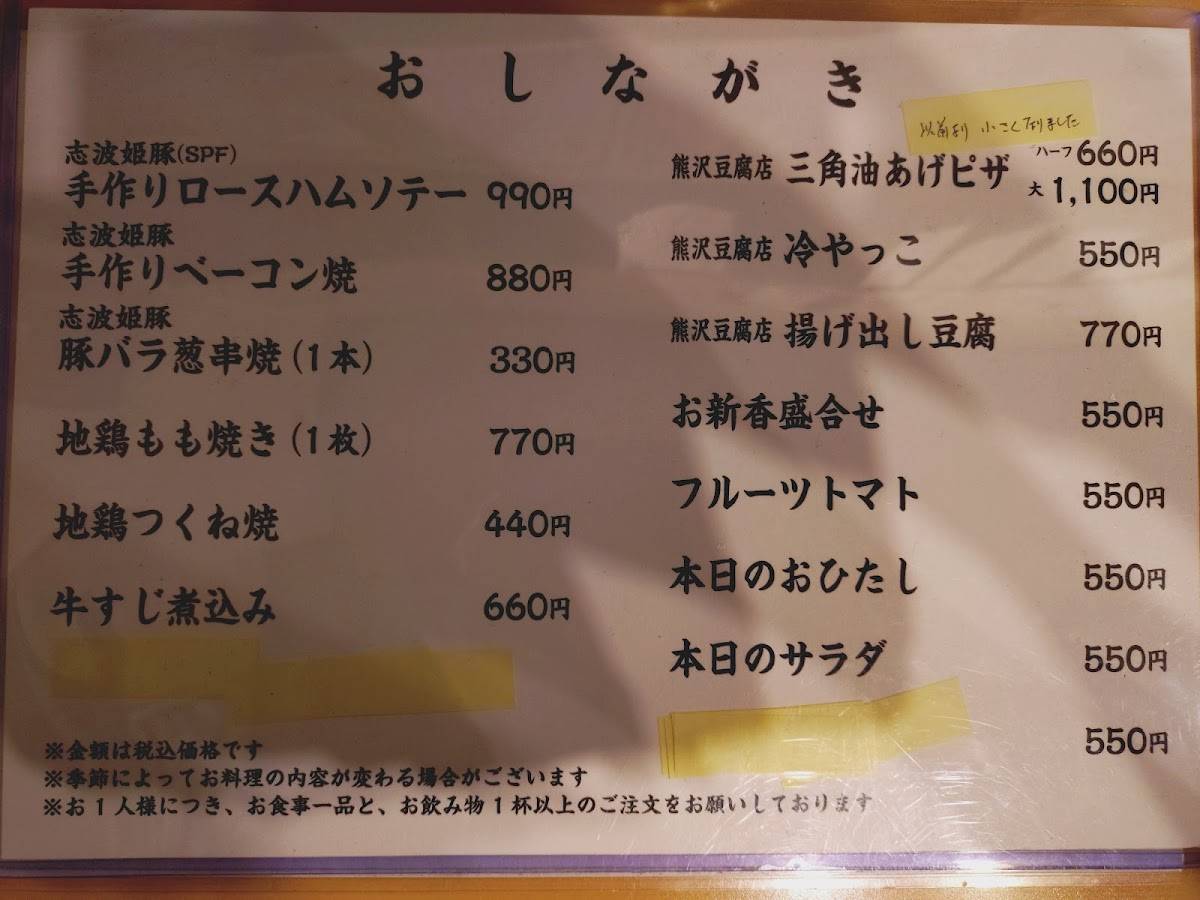 おしながき
志波姫豚(SPF)
手作りロースハムソテー 990円
志波姫豚
手作りベーコン焼 880円
志波姫豚
豚バラ葱串焼(1本) 330円
地鶏もも焼き(1枚) 770円
地鶏つくね焼 440円
牛すじ煮込み 660円
※金額は税込価格です
※季節によってお料理の内容が変わる場合がございます
※お1人様につき、お食事一品と、お飲み物1杯以上のご注文をお願いしております
以前より 小さくなりました
熊沢豆腐店 三角油あげピザ ハーフ 660円
大 1,100円
熊沢豆腐店 冷やっこ 550円
熊沢豆腐店 揚げ出し豆腐 770円
お新香盛合せ 550円
フルーツトマト 550円
本日のおひたし 550円
本日のサラダ 550円
550円